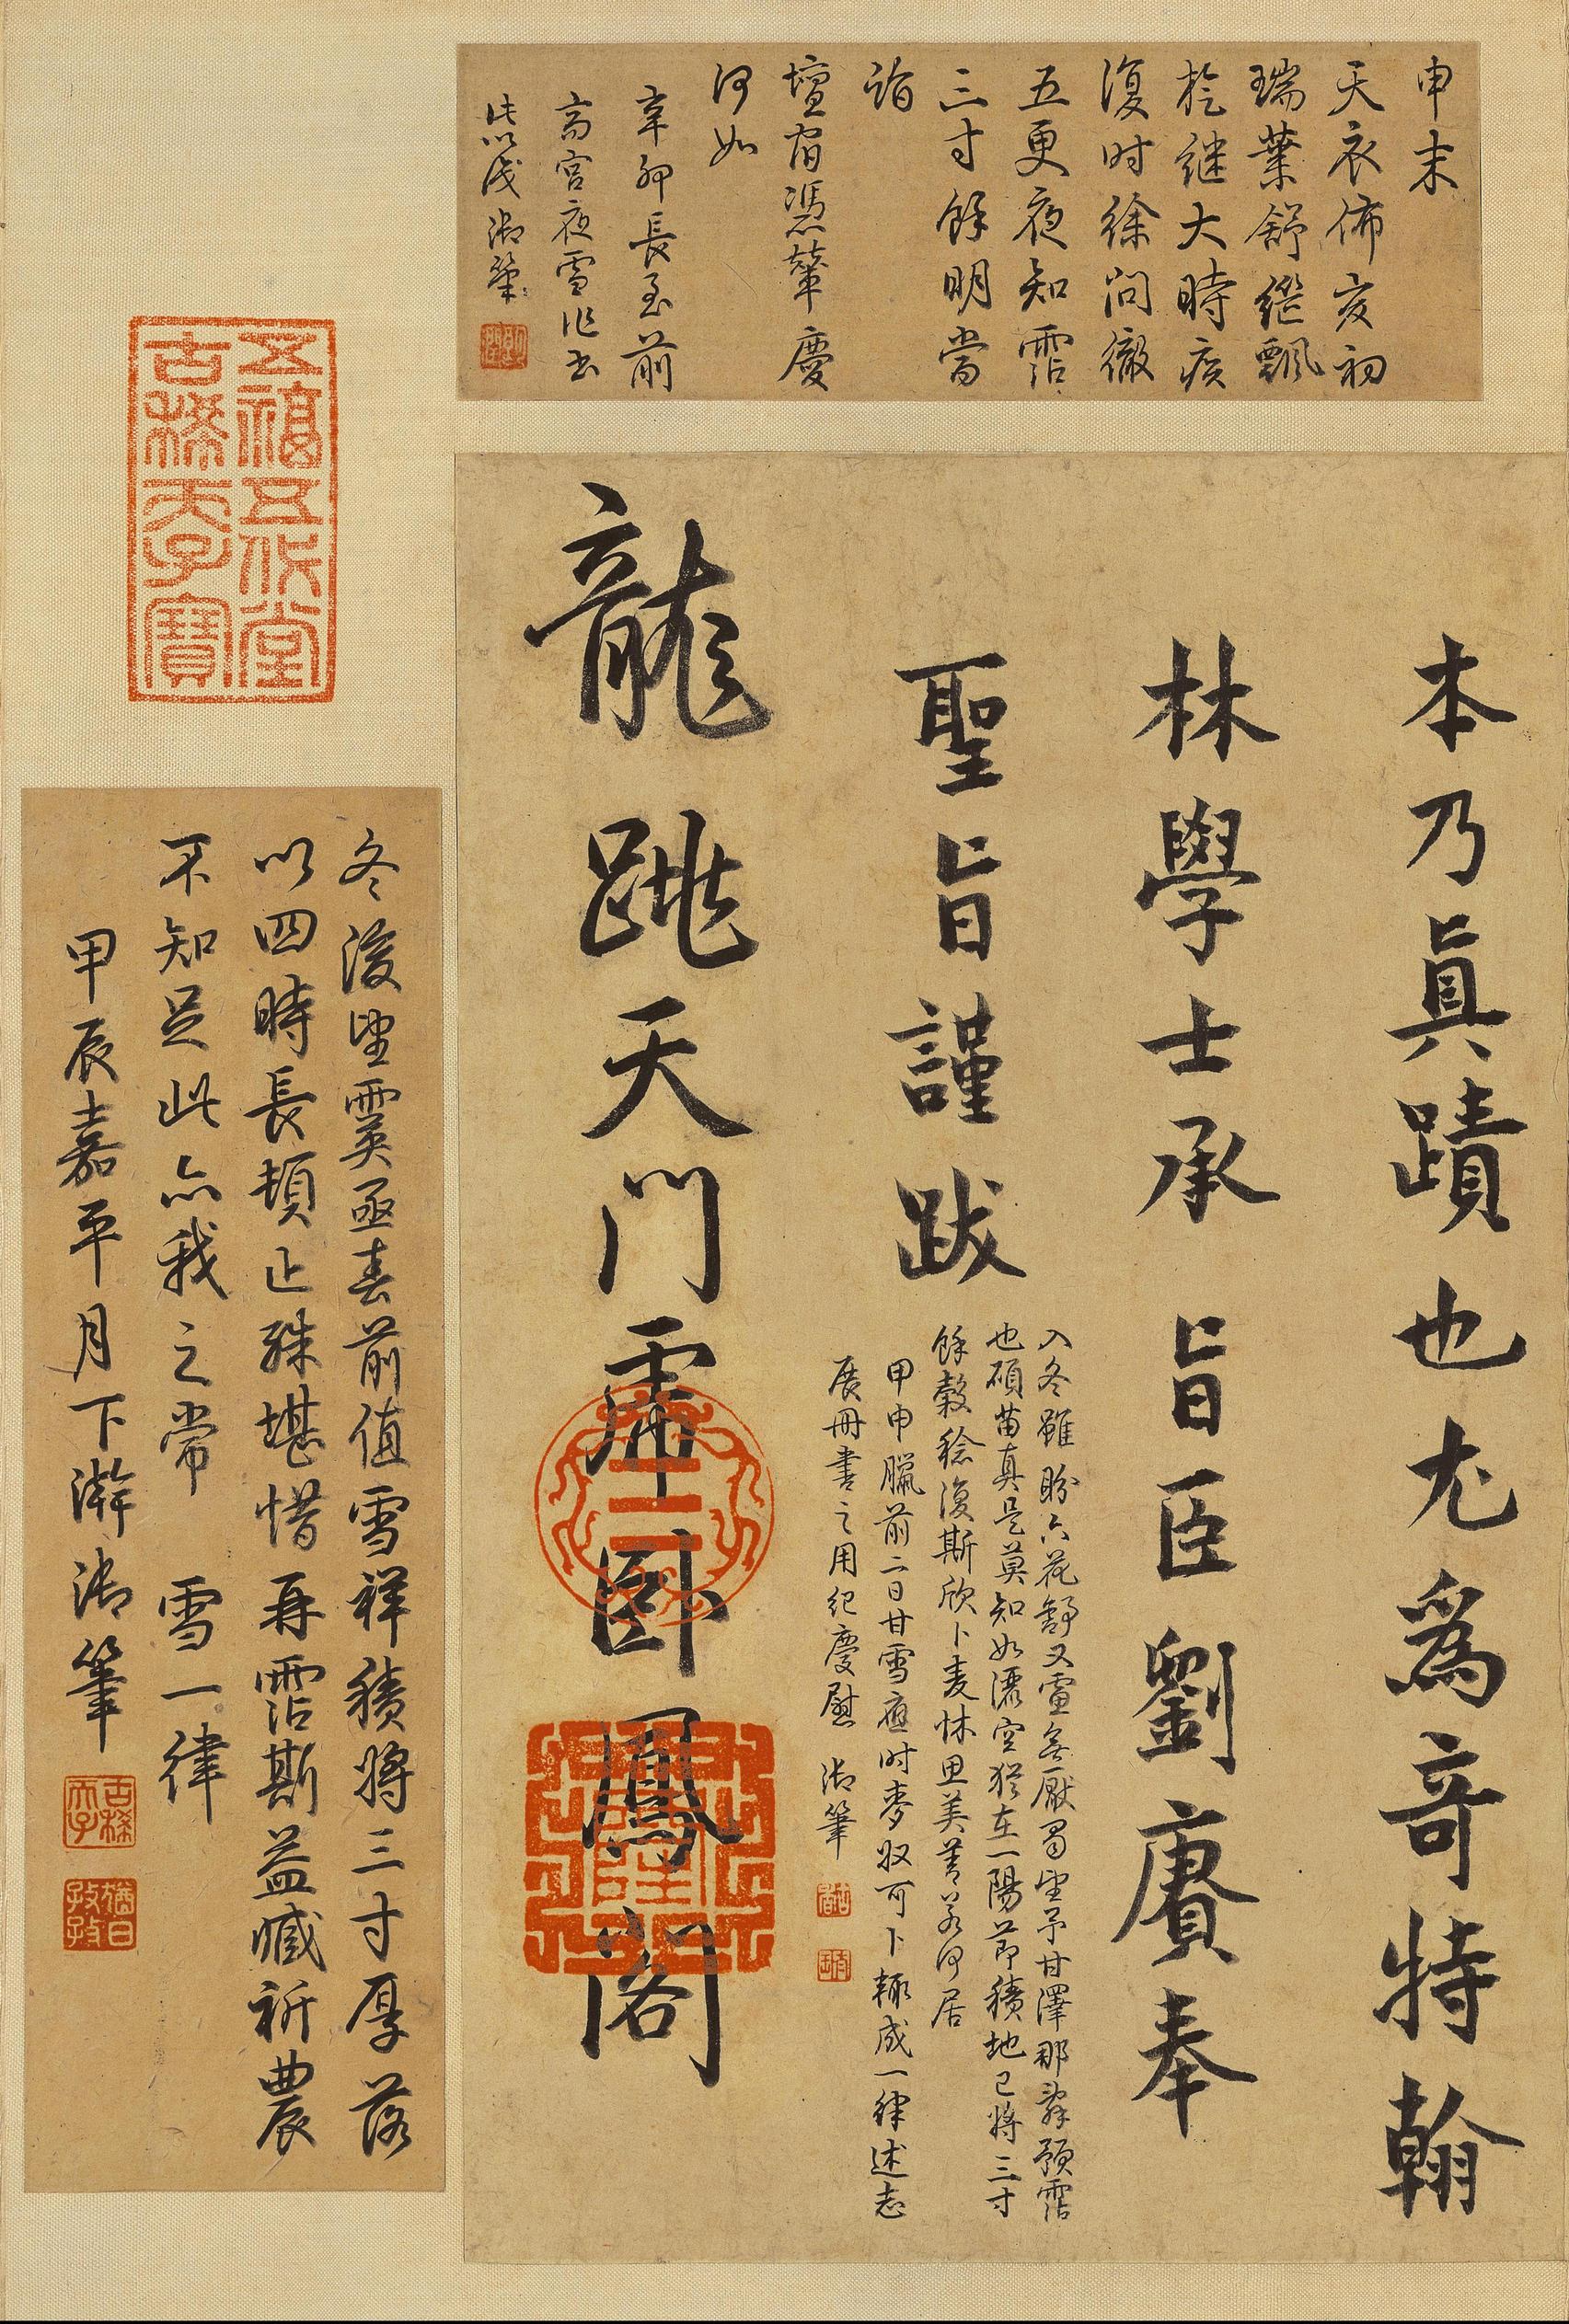 申末
天衣佈亥初
瑞葉舒纔飄
旋继大時疾
復时徐问徹
五更夜知霑
三寸餘明當
詣
壇宿憑輦慶
何如
辛卯長至前
齋宫夜雪作書
志以成 御筆
本乃真蹟也尤爲奇特翰
林學士承旨臣劉賡奉
聖旨謹跋
龍跳天門虎卧鳳閣
入冬雖盼六花舒又慮無厭蜀望予甘澤那辭預霑
也碩苗真是莫知如灑空猶在一陽節積地已將三寸
餘穀稔復斯欣卜麦怵思美善若何居
甲申臘前二日甘雪應时麥收可卜輒成一律述志
展冊書之用纪慶慰 御筆
冬後望霙亟春前值雪祥積將三寸厚落
以四時長頓止殊堪惜再霑斯益臧祈農
不知足此亦我之常 雪一律
甲辰嘉平月下澣御筆
五福五代堂
古稀天子寶
乾
隆
古稀
天子
猶日
孜孜